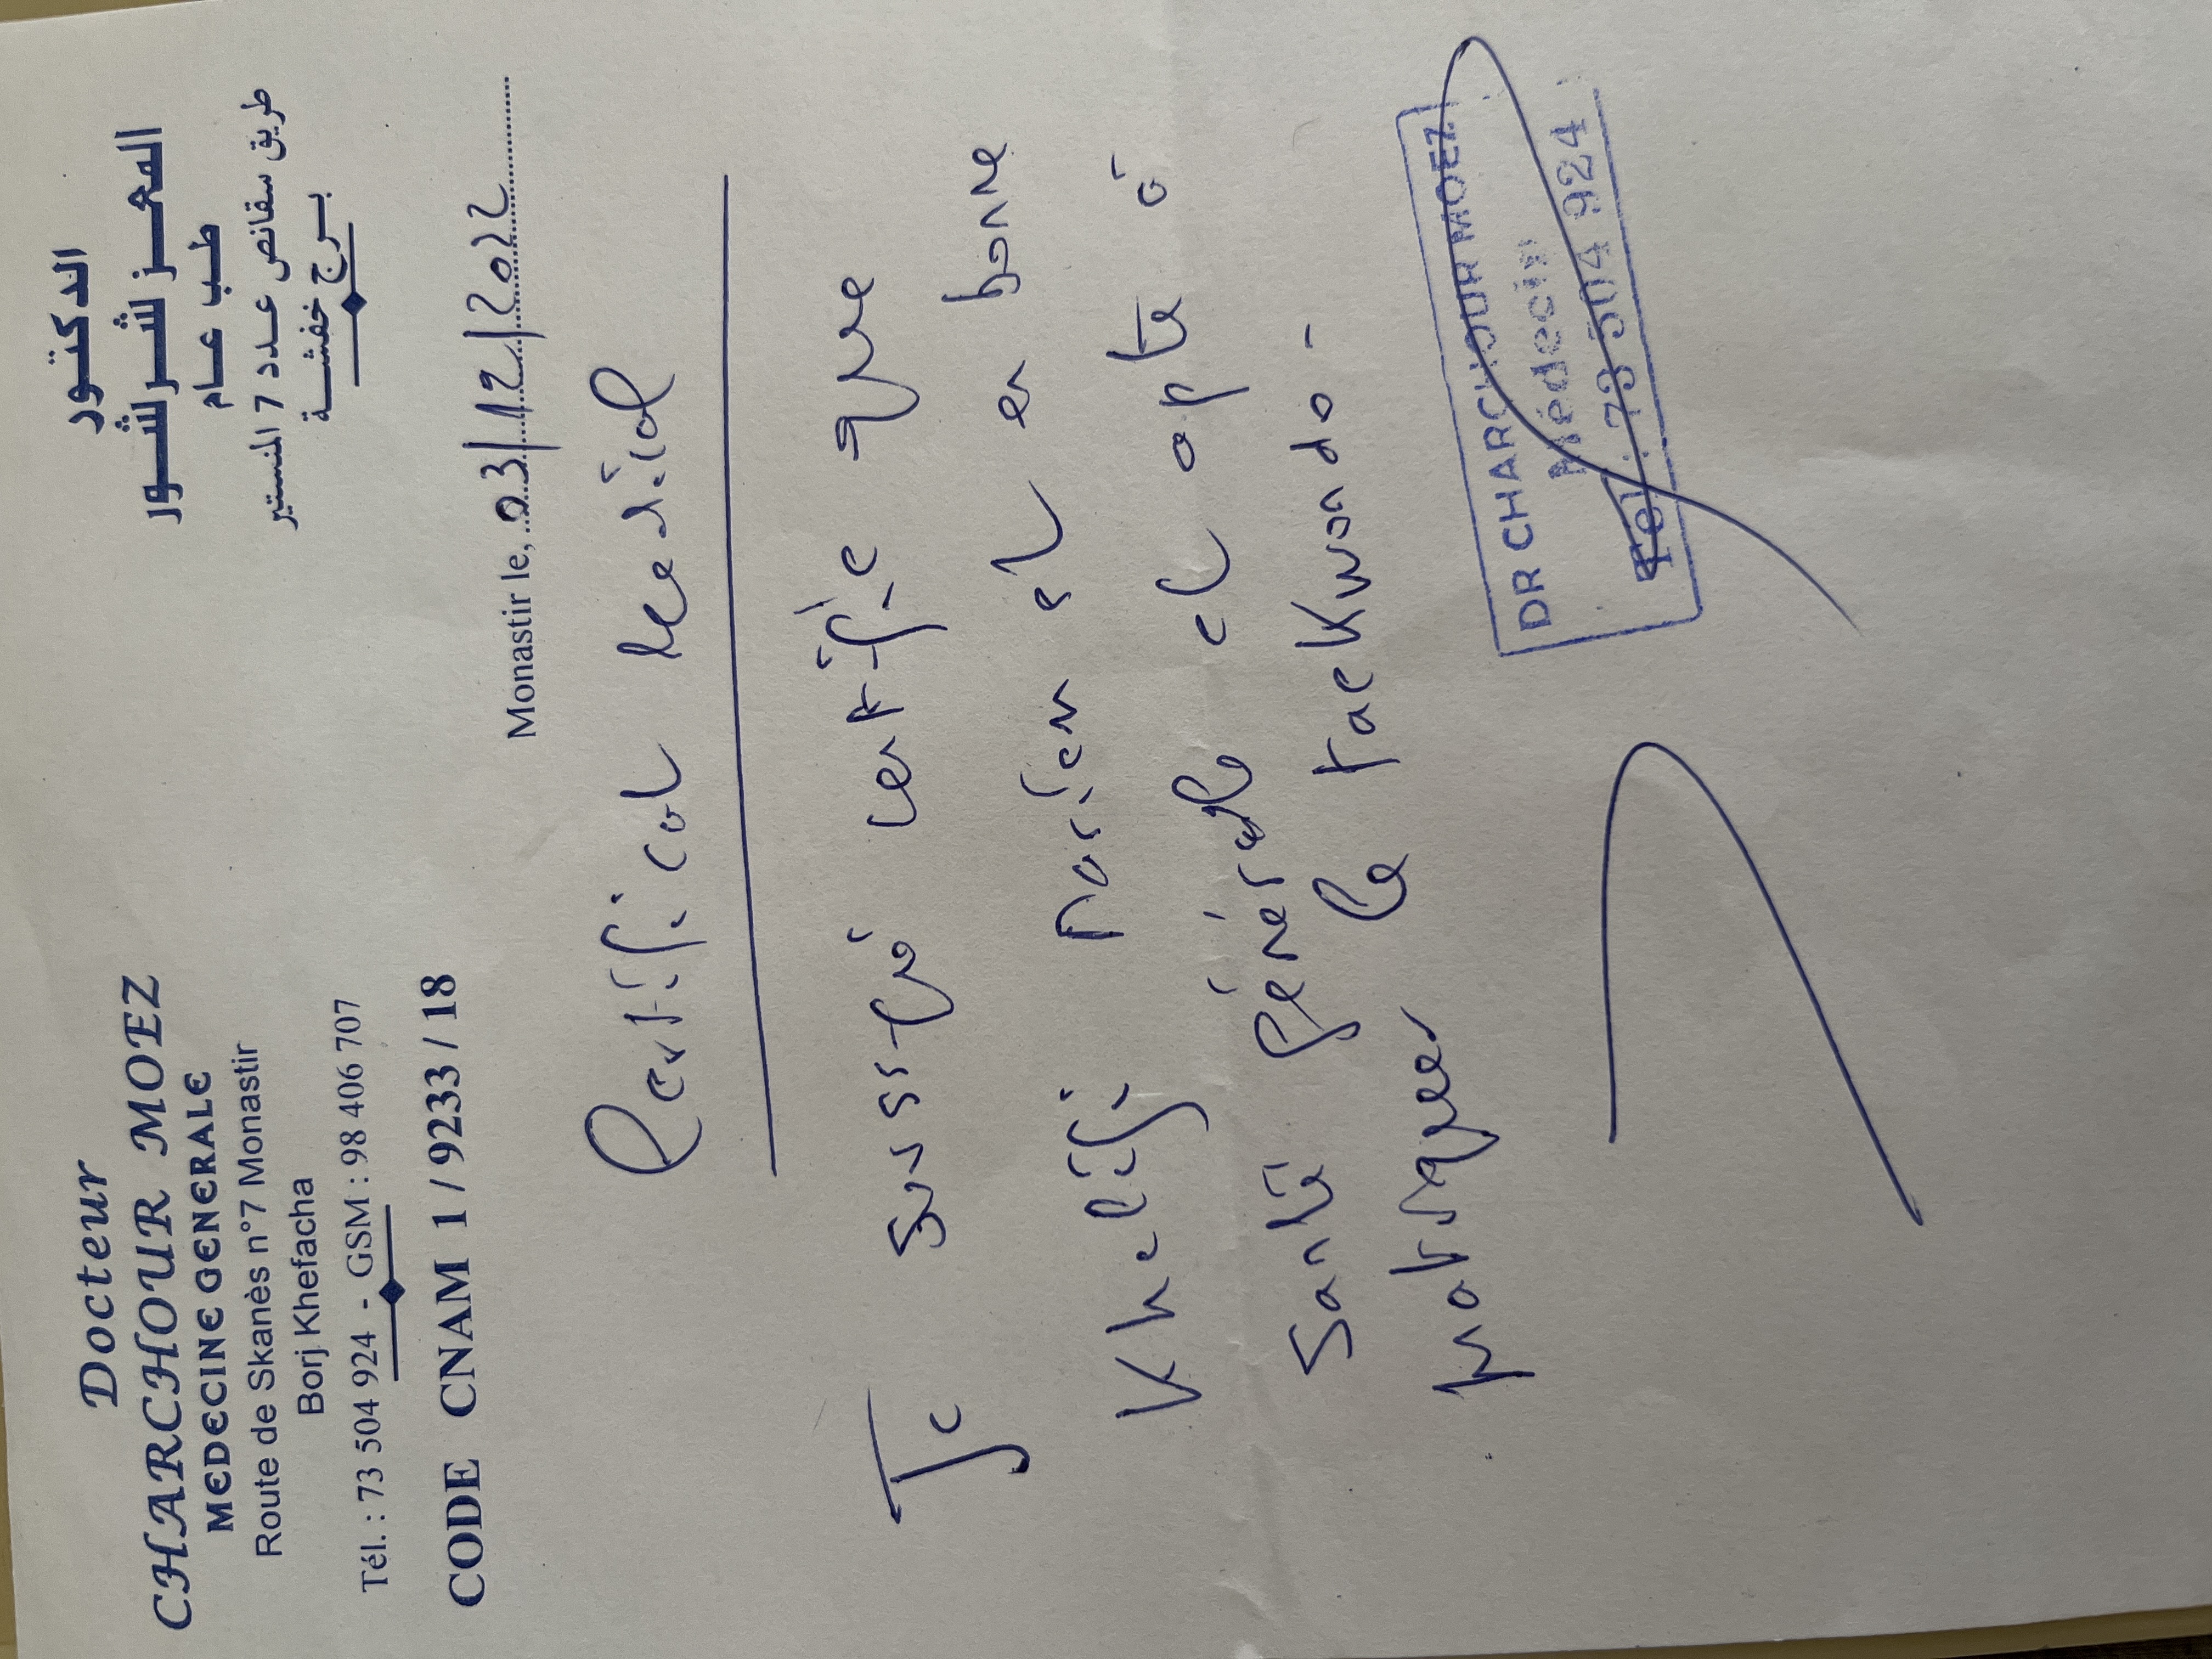 Docteur
CHARCHOUR MOEZ
MEDECINE GENERALE
Route de Skanès n°7 Monastir
Borj Khefacha
Tél. : 73 504 924 - GSM : 98 406 707
CODE CNAM 1 / 9233 / 18
الدكتور
المعز شرشور
طب عام
طريق سقانص عدد 7 المنستير
برج خفشة
Monastir le, 03/12/202
Certificat medical
Je certifie que
Khelifi est en bonne
Santé générale et apte à
pratiquer le taekwondo -
DR CHARCHOUR MOEZ
Médecin
Tel : 73 504 924